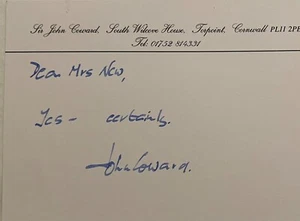 Sir John Coward, South Wilcove House, Torpoint, Cornwall PL11 2PE
Tel: 01752 814331
Dear Mrs New,
Yes – certainly.
John Coward.